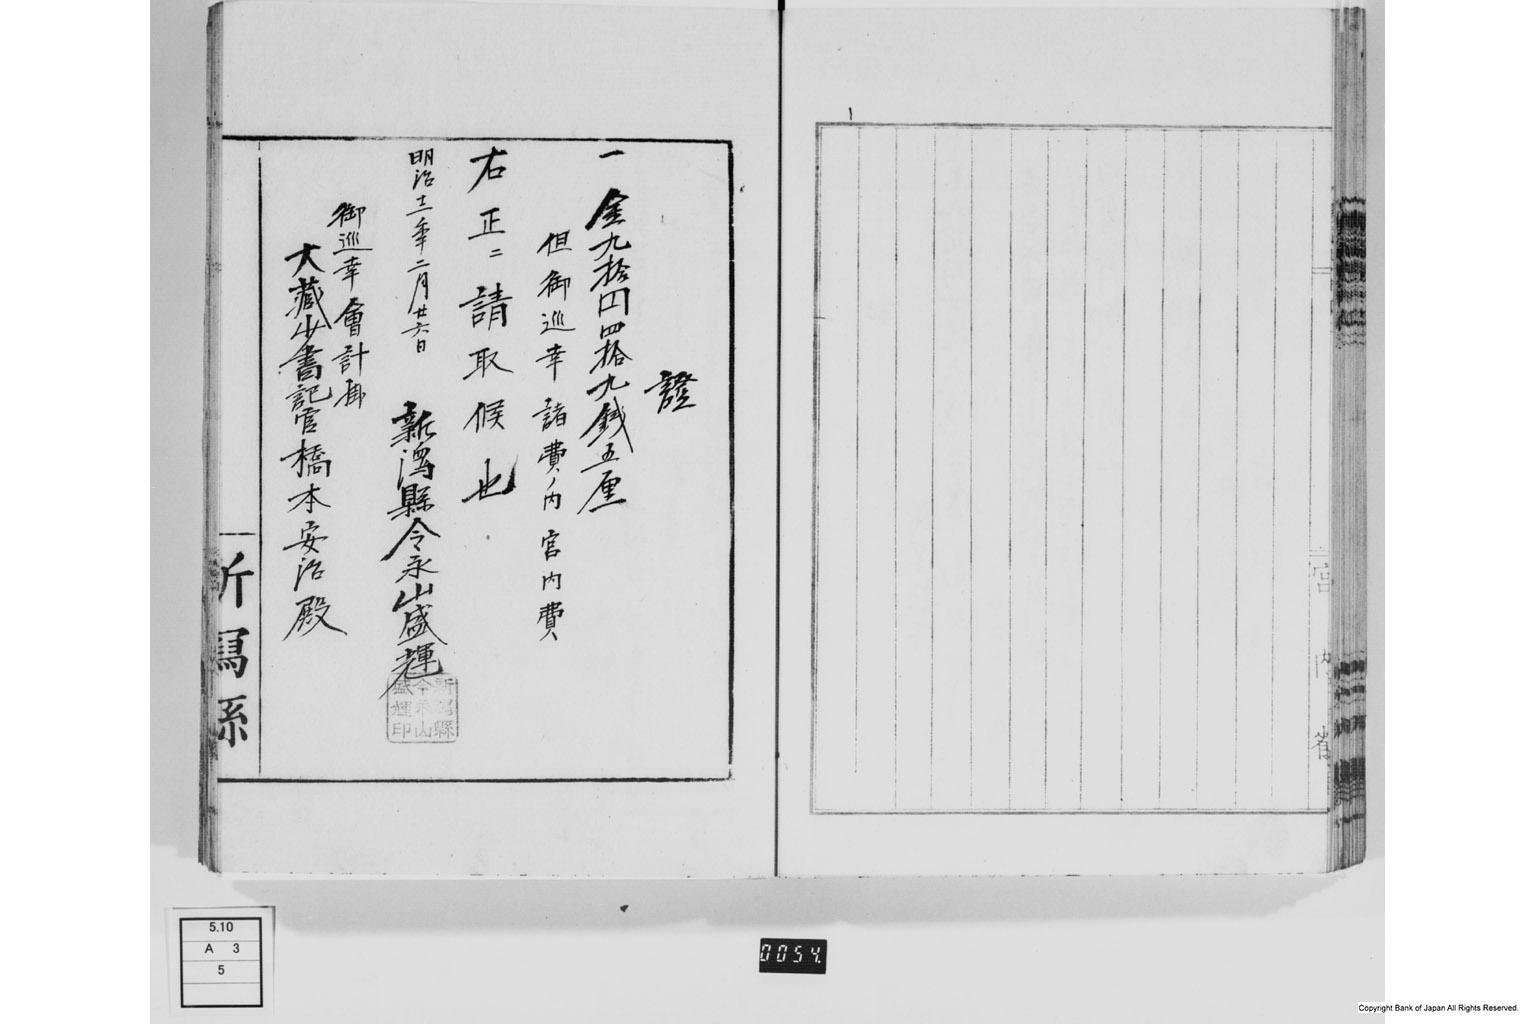 證
一金九拾円四拾九銭五厘
但御巡幸諸費ノ内宮内費
右正ニ請取候也
明治十二年二月廿六日
新潟縣令永山盛輝
新潟縣令永山盛輝印
御巡幸會計掛
大藏少書記官橋本安治殿
新潟縣
宮内省
5.10
A 3
5
0054
Copyright Bank of Japan All Rights Reserved.